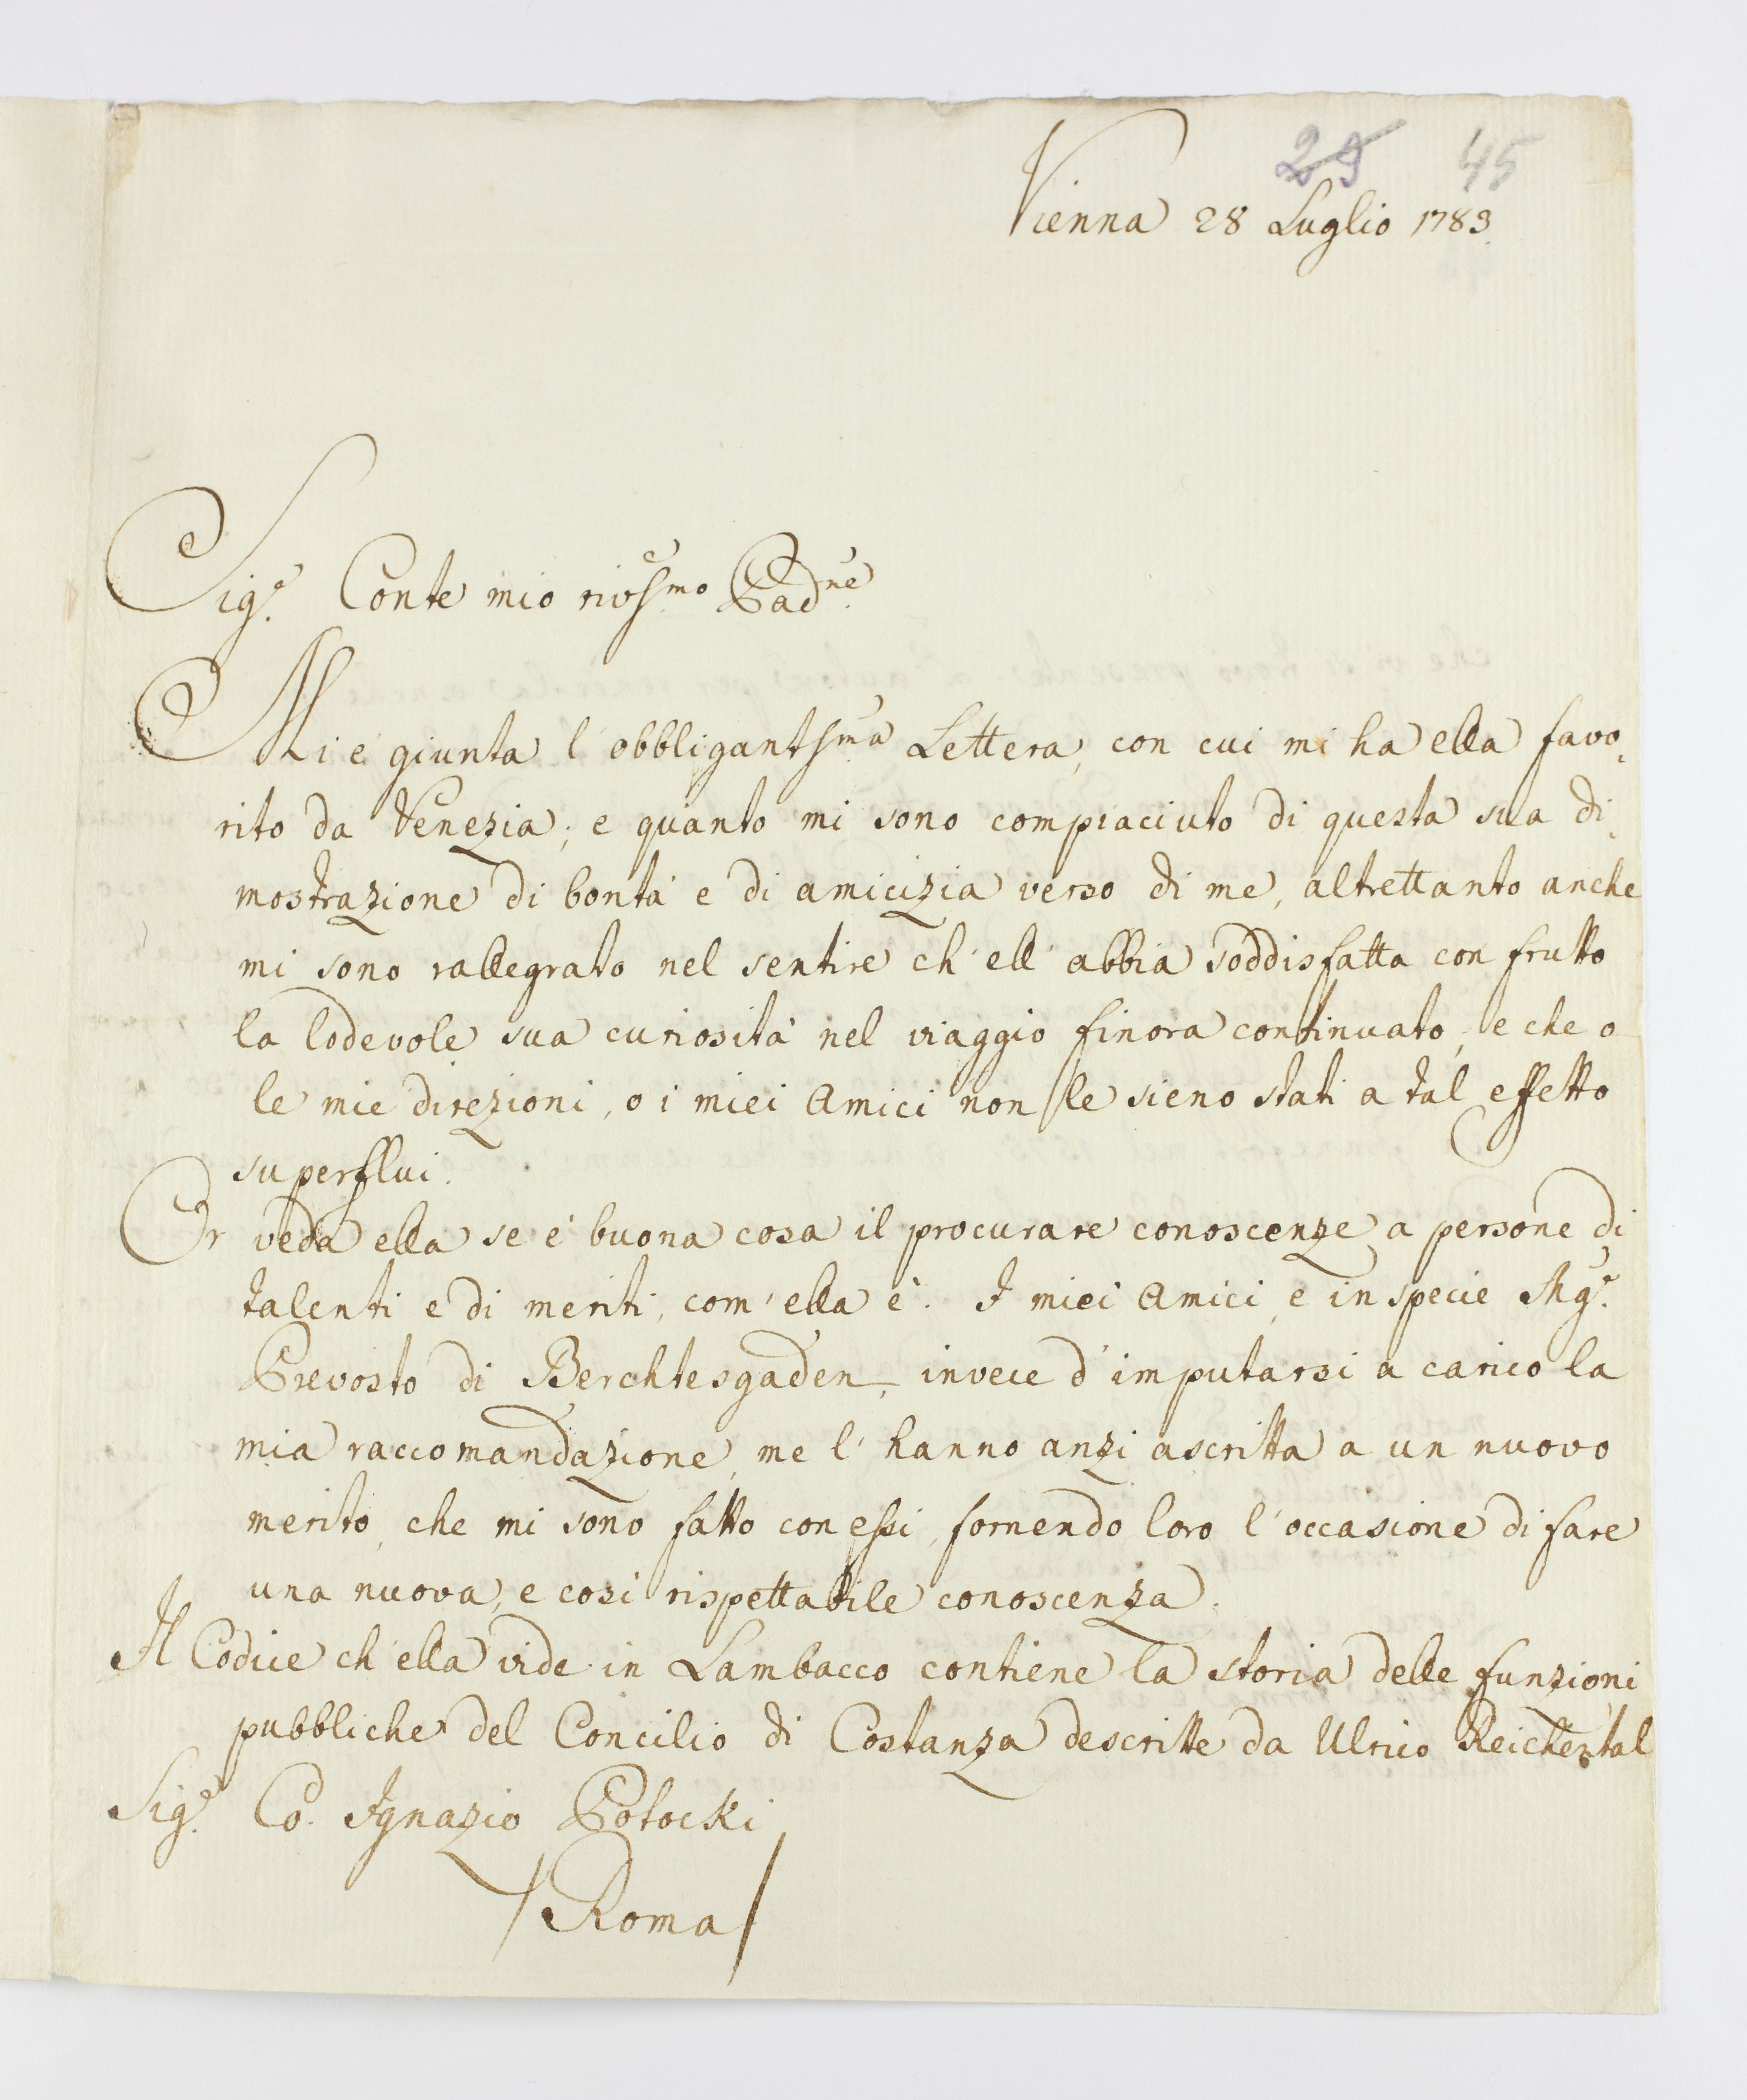 29 45
Vienna 28 Luglio 1783.
Sig.e Conte mio rivsmo Padne
Mi è giunta l'obbligantsma Lettera, con cui mi ha ella favo,
rito da Venezia; e quanto mi sono compiaciuto di questa sua di,
mostrazione di bontà e di amicizia verso di me, altrettanto anche
mi sono rallegrato nel sentire ch'ell'abbia soddisfatta con frutto
la lodevole sua curiosità nel viaggio finora continuato, e che o
le mie direzioni, o i miei Amici non le sieno stati a tal effetto
superflui.
Or veda ella se è buona cosa il procurare conoscenze a persone di
talenti e di meriti, com'ella è. I miei Amici, e in specie Mg.r
Prevosto di Berchtesgaden, invece d'imputarsi a carico la
mia raccomandazione, me l'hanno anzi ascritta a un nuovo
merito, che mi sono fatto con essi, fornendo loro l'occasione di fare
una nuova, e così rispettabile conoscenza.
Il Codice ch'ella vide in Lambacco contiene la storia delle funzioni
pubbliche del Concilio di Costanza descritte da Ulrico Reichental
Sig.e Co. Ignazio Potocki
/Roma/